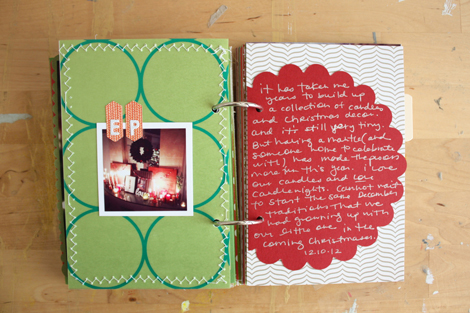 EP
it has taken me
years to build up
a collection of candles
and christmas decor.
and it's still very tiny.
But having a mantle (and
someone home to celebrate
with) has made the
more fun this year. i love
our candles and
candlenights. cannot wait
to start the same December
traditions that we
had growing up with
our little one in the
coming christmases.
12.10.12